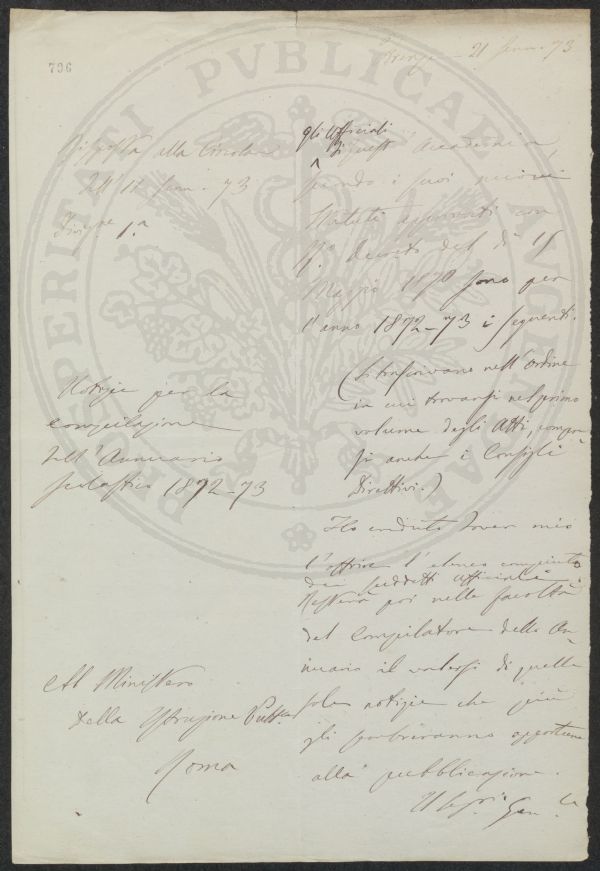 Firenze 21 Genn. 73
796
PROSPERITATI PUBLICAE AUGENDAE
Risposta alla Circolare
dell' 11 Genn. 73
Divisne 1.a
Notizie per la
compilazione
dell'Annuario
scolastico 1872-73
Al Ministero
della Istruzione Pubca
Roma
gli Ufficiali
di questa Accademia
secondo i suoi nuovi
Statuti approvati con
Ro Decreto del dì 15
Maggio 1870 sono per
l'anno 1872-73 i seguenti.
(Si trascrivano nell'ordine
in cui trovansi nel primo
volume degli Atti,
anche i Consigli
Direttivi.)
Ho creduto dover mio
l'offrire l'elenco compiuto
dei suddetti ufficiali.
Resterà poi nella facoltà
del Compilatore dello An-
nuario il valersi di quelle
sole notizie che più
gli sembreranno opportune
alla pubblicazione.
Il Segr. Gen.le